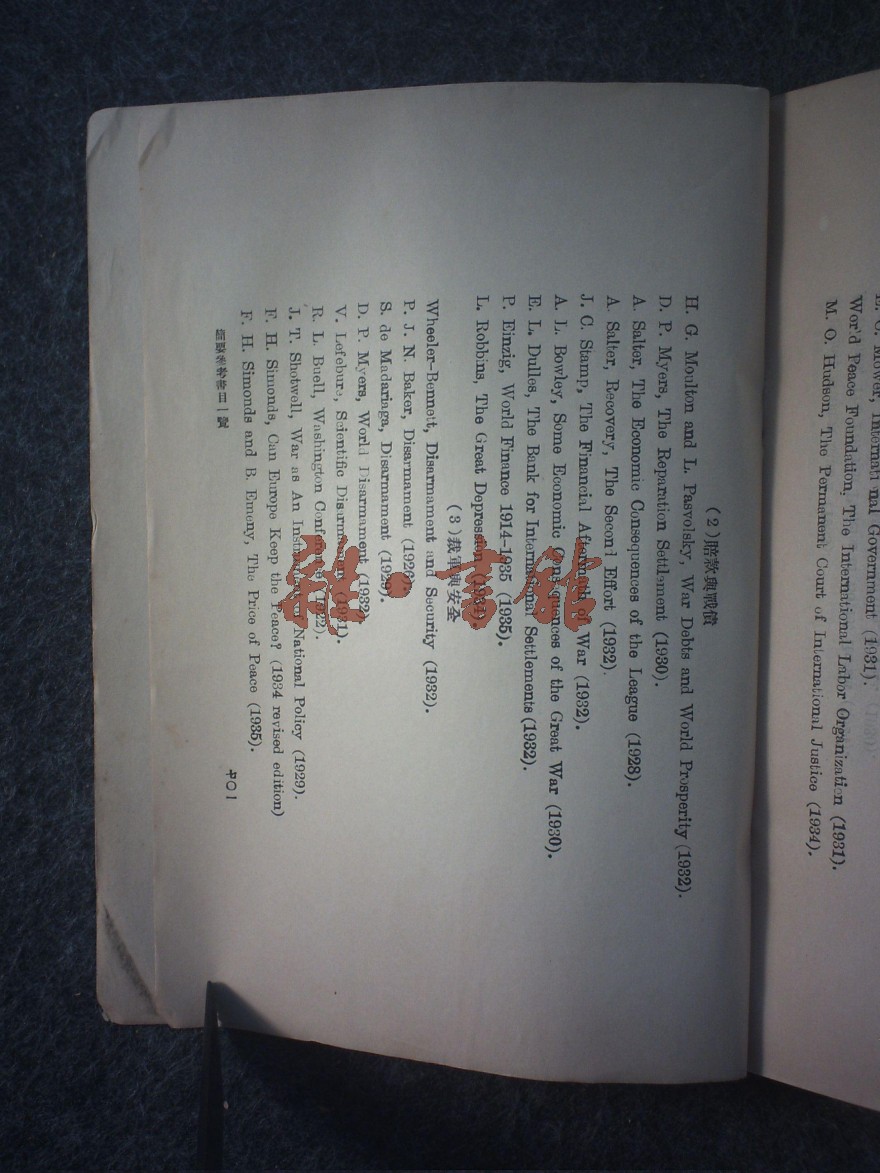 Wor'd Peace Foundation, The International Labor Organization (1931).
M. O. Hudson, The Permanent Court of International Justice (1934).
(2)賠款與戰債
H. G. Moulton and L. Pasvolsky, War Debts and World Prosperity (1932).
D. P. Myers, The Reparation Settlement (1930).
A. Salter, The Economic Consequences of the League (1928).
A. Salter, Recovery, The Second Effort (1932).
J. C. Stamp, The Financial Aftermath of War (1932).
A. L. Bowley, Some Economic Consequences of the Great War (1930).
E. L. Dulles, The Bank for International Settlements (1932).
P. Einzig, World Finance 1914-1935 (1935).
L. Robbins, The Great Depression (1934).
(3)裁軍與安全
Wheeler-Bennett, Disarmament and Security (1932).
P. J. N. Baker, Disarmament (1926).
S. de Madariaga, Disarmament (1929).
D. P. Myers, World Disarmament (1932).
V. Lefebure, Scientific Disarmament (1931).
R. L. Buell, Washington Conference (1922).
J. T. Shotwell, War as An Instrument of National Policy (1929).
F. H. Simonds, Can Europe Keep the Peace? (1934 revised edition)
F. H. Simonds and B. Emeny, The Price of Peace (1935).